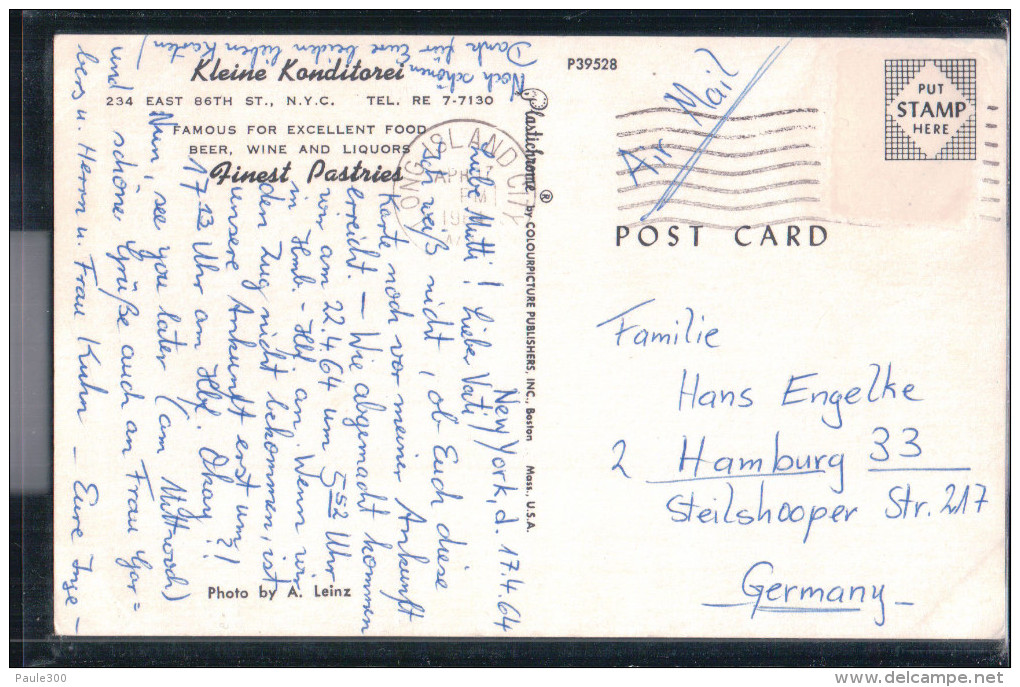 Kleine Konditorei
234 EAST 86TH ST., N.Y.C. TEL. RE 7-7130
FAMOUS FOR EXCELLENT FOOD
BEER, WINE AND LIQUORS
Finest Pastries
Photo by A. Leinz
Plastichrome ® by COLOURPICTURE PUBLISHERS, INC., Boston Mass., U.S.A.
P39528
PUT
STAMP
HERE
POST CARD
LONG ISLAND CITY
APR 17
PM
Air Mail
New York, d. 17.4.64
Liebe Mutti! Lieber Vati!
Ich weiß nicht, ob Euch diese
Karte noch vor meiner Ankunft
erreicht. – Wie abgemacht kommen
wir am 22.4.64 um 5 52 Uhr
in Hmb.-Hbf. an. Wenn wir
den Zug nicht bekommen, ist
unsere Ankunft erst um
17.13 Uhr am Hbf. Okay?!
Nun, see you later (am Mittwoch)
und schöne Grüße auch an Frau Gar=
bers u. Herrn u. Frau Kuhn – Eure Inge –
Noch schönen
Dank für Eure beiden lieben Karten!
Familie
Hans Engelke
2 Hamburg 33
Steilshooper Str. 217
Germany
Paule300
delcampe.net